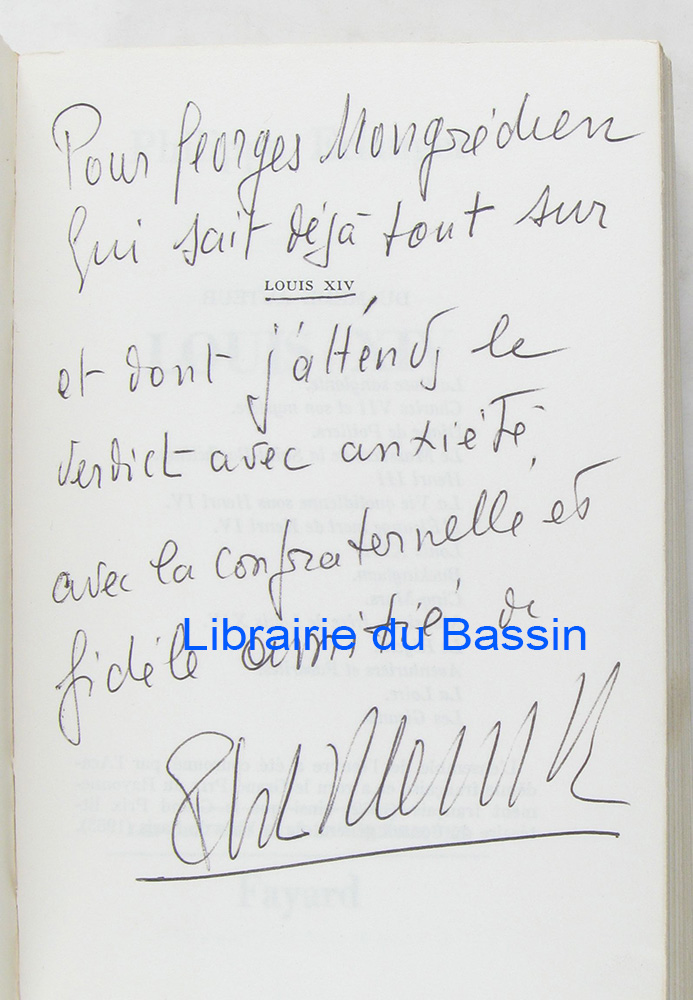 Pour Georges Mongrédien
qui sait déjà tout sur
LOUIS XIV,
et dont j'attends le
verdict avec anxiété,
avec la confraternelle et
fidèle amitié de
Librairie du Bassin
Fayard